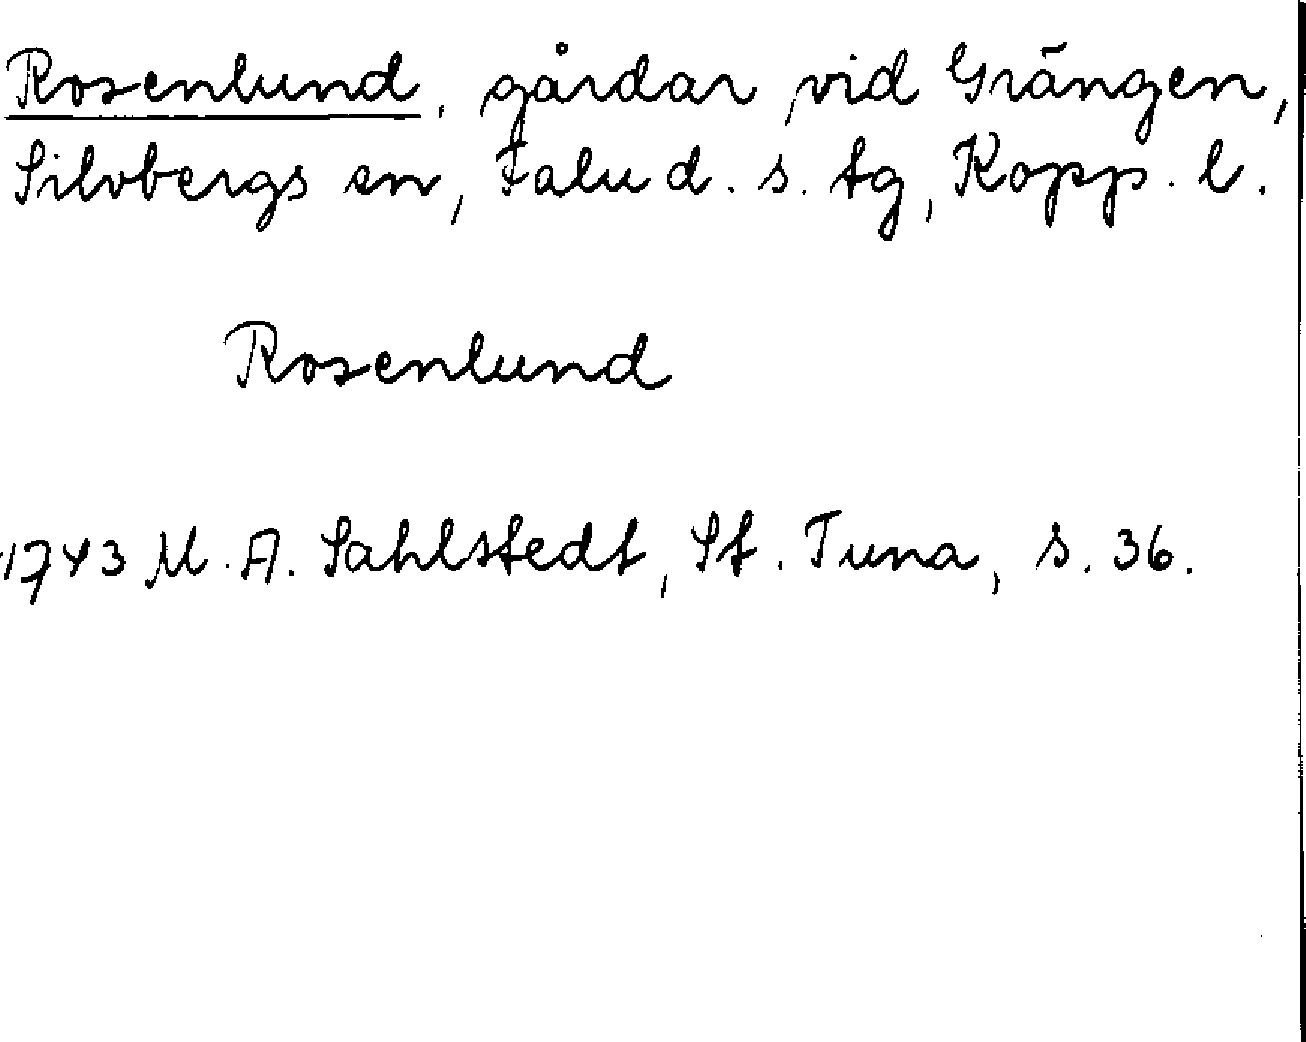 Rosenlund, gårdar vid Grängen,
Silvbergs sn, Falu d. s. tg, Kopp. l.
Rosenlund
1743 M. A. Sahlstedt, St. Tuna, s. 36.